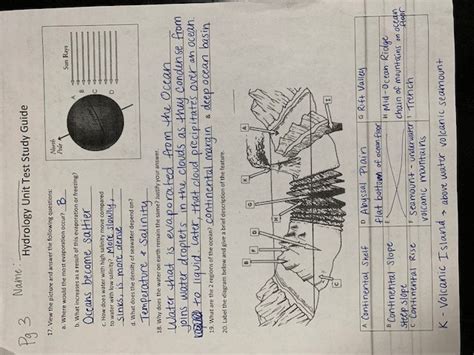 Pg 3
Name
Hydrology Unit Test Study Guide
17. View the picture and answer the following questions:
a. Where would the most evaporation occur? B
b. What increases as a result of this evaporation or freezing?
Oceans become saltier
c. How does water with high salinity move compared
to water with low salinity? More slowly
sinks, is more dense
d. What does the density of seawater depend on?
Temperature & Salinity
North
Pole
Sun Rays
A
B
C
D
18. Why does the water on earth remain the same? Justify your answer.
Water that is evaporated from the Ocean
joins water droplets in the clouds as they condense from
to liquid later that cloud precipitates over an ocean.
19. What are the 2 regions of the ocean? continental margin & deep ocean basin
20. Label the diagram below and give a brief description of the feature.
A Continental Shelf
D Abyssal Plain
flat bottom of ocean floor
G Rift Valley
B Continental Slope
steep slope
E
H Mid-Ocean Ridge
chain of mountains on ocean
floor
C Continental Rise
F Seamount - underwater
volcanic mountains
I Trench
K - Volcanic Island → above water volcanic seamount